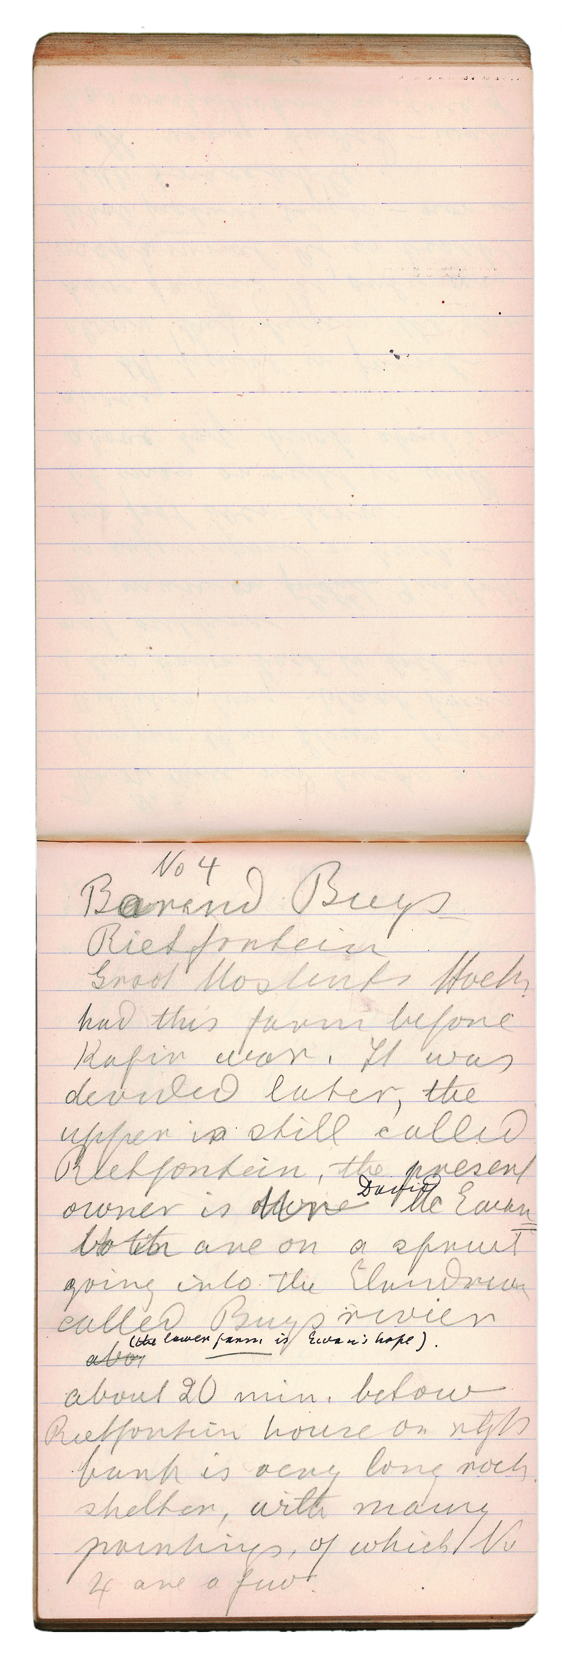 No 4
Barend Buys
Rietfontein
Groot Hoek
had this farm before
Kafir war. It was
devided later, the
upper is still called
Rietfontein, the present
owner is David Mc Ewan
both are on a spruit
going into the
called Buys rivier
(the lower farm is Ewan's hope).
about 20 min. below
Rietfontein house on right
bank is very long rock
shelter, with many
paintings, of which No
4 are a few.